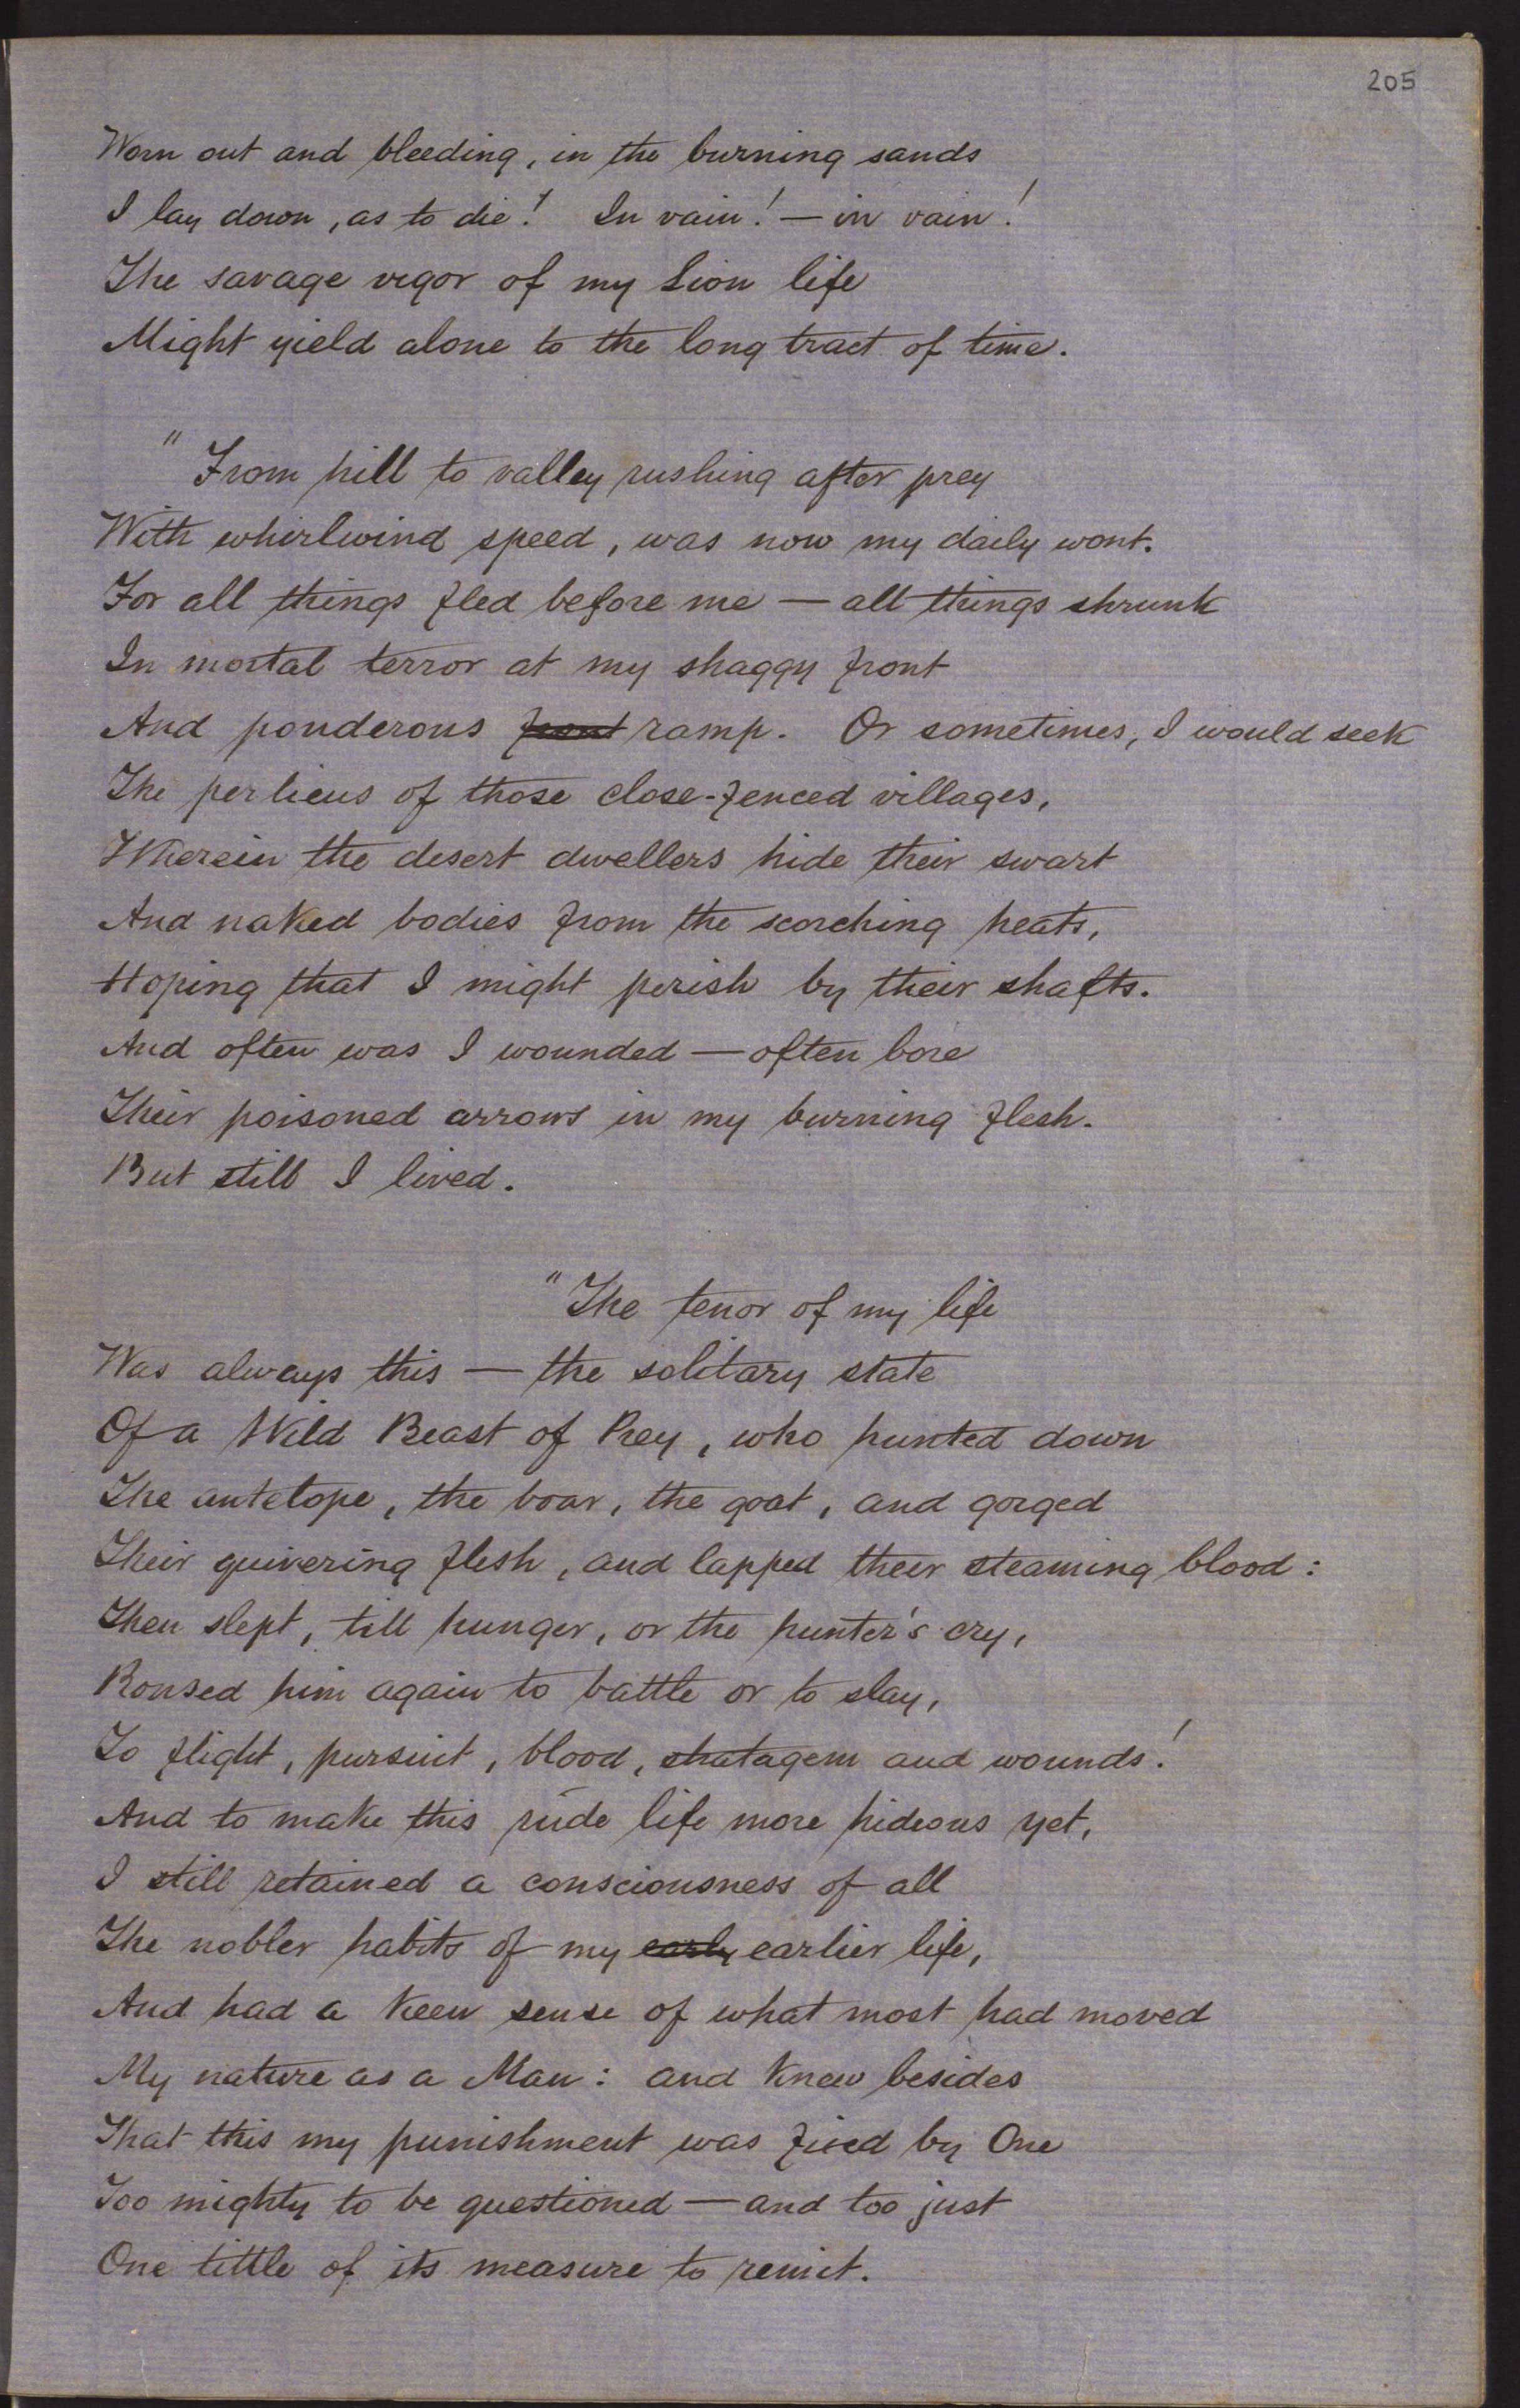 205
Worn out and bleeding, in the burning sands
I lay down, as to die! In vain! — in vain!
The savage vigor of my Lion life
Might yield alone to the long tract of time.
"From hill to valley rushing after prey
With whirlwind speed, was now my daily wont.
For all things fled before me — all things shrunk
In mortal terror at my shaggy front
And ponderous front ramp. Or sometimes, I would seek
The perlieus of those close-fenced villages,
Wherein the desert dwellers hide their swart
And naked bodies from the scorching heats,
Hoping that I might perish by their shafts.
And often was I wounded — often bore
Their poisoned arrows in my burning flesh.
But still I lived.
"The tenor of my life
Was always this — the solitary state
Of a Wild Beast of Prey, who hunted down
The antelope, the boar, the goat, and gorged
Their quivering flesh, and lapped their steaming blood:
Then slept, till hunger, or the hunter's cry,
Roused him again to battle or to slay,
To flight, pursuit, blood, stratagem and wounds!
And to make this rude life more hideous yet,
I still retained a consciousness of all
The nobler habits of my early earlier life,
And had a keen sense of what most had moved
My nature as a Man: and knew besides
That this my punishment was fixed by One
Too mighty to be questioned — and too just
One tittle of its measure to remit.